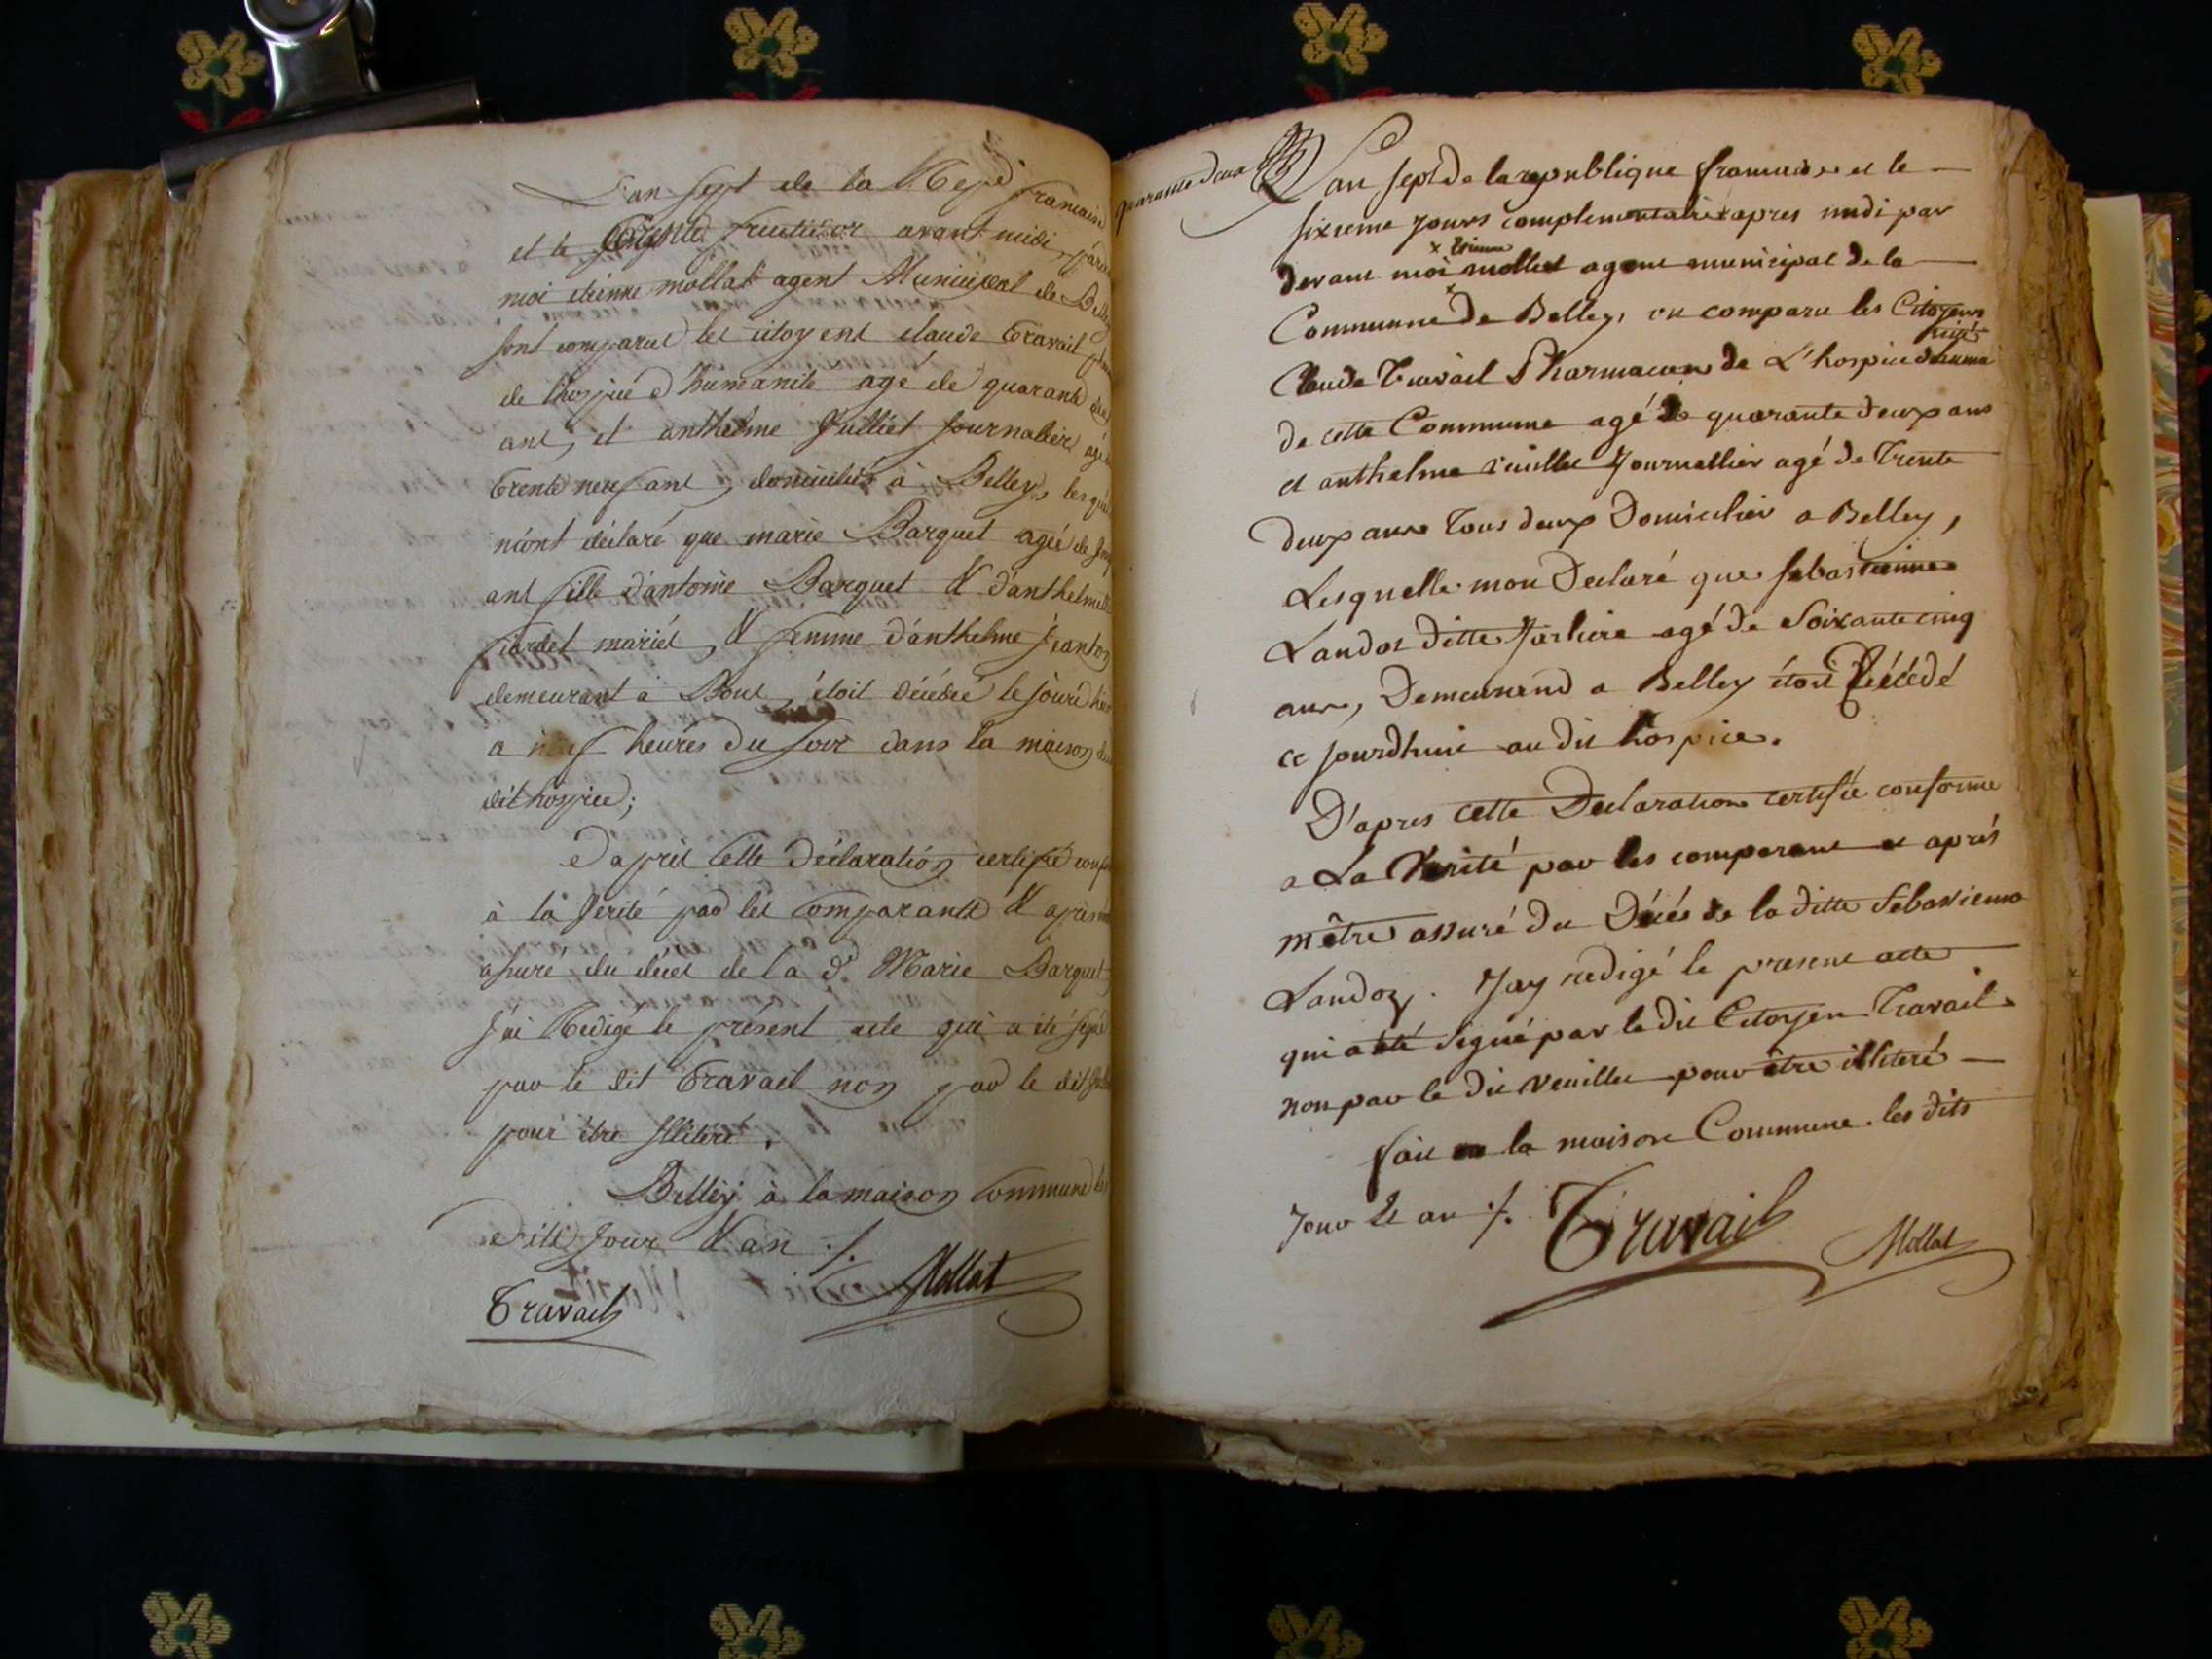 L'an sept de la Repe francaise
et le fructidor avant midi, par
moi etienne mollat agent Municipal de Belley
sont comparus les citoyens claude Travail
de lhospice d'humanité agé de quarante
ans, et anthelme Julliet Journalier agé
trente neuf ans, domiciliés à Belley, lesquels
m'ont déclaré que marie Barquet agée de
ans fille d'antoine Barquet & d'anthelmette
mariés, & femme d'anthelme
demeurant à Bons, étoit décédée le jour d'hier
a neuf heures du soir dans la maison du
dit hospice;
D'apres cette déclaration certifié
à la verité par les Comparants & apres
assuré du décés de la de Marie Barquet,
J'ai Redigé le présent acte qui a été signé
par le dit Travail non par le dit
pour être illiteré.
Belley à la maison Commune les
dits Jour & an ./.
Travail Mollat
quarante deux
L'an sept de la republique francaise et le
sixieme jours complementaire apres midi par
x etienne
devant moi mollat agent municipal de la
Commune de Belley, on comparu les Citoyens
nité
Claude Travail Pharmacien de L'hospice dhuma
de cette Commune agé de quarante deux ans
et anthelme vuillet Journallier agé de Trente
deux ans Tous deux Domicilier a Belley,
Lesquelle mon Declaré que sebastienne
Landoz ditte agé de Soixante cinq
ans, Demeurand a Belley étoit Décédé
ce jourdhuie au dit hospice.
D'apres cette Declaration certifié conforme
a La Verité par les comparant et aprés
mêtre assuré du Décés de la ditte Sebastienne
Landoz. Jay redigé le present acte
qui a été signé par le dit Citoyen Travail
non par le dit veuillet pour être illiteré
fait a la maison Commune. les dits
Jour & an ./. Travail Mollat